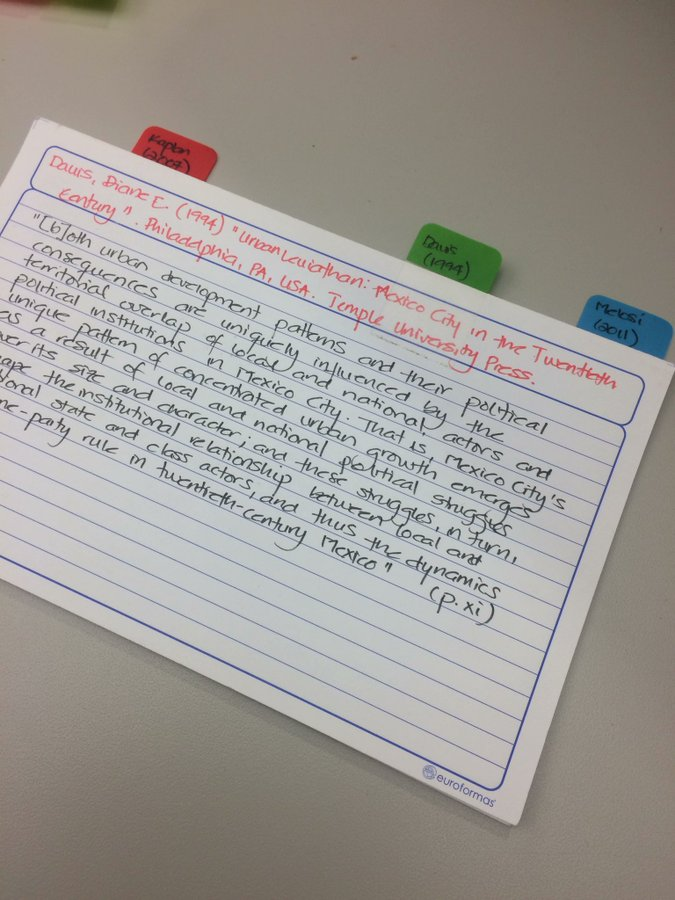 Kaplan
(2007)
Davis
(1994)
Melosi
(2011)
Davis, Diane E. (1994) "Urban Leviathan: Mexico City in the Twentieth
Century". Philadelphia, PA, USA. Temple University Press.
"[b]oth urban development patterns and their political
consequences are uniquely influenced by the
territorial overlap of local and national actors and
political institutions in Mexico City. That is, Mexico City's
unique pattern of concentrated urban growth emerges
as a result of local and national political struggles
ver its size and character; and these struggles, in turn,
ape the institutional relationship between local and
ional state and class actors, and thus the dynamics
ne-party rule in twentieth-century Mexico" (p. xi)
euroformas